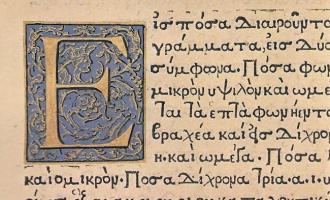 Εἰς πόσα Διαιροῦντα
γράμματα, εἰς Δύο
σύμφωνα. Πόσα φων
μικρὸν ὑψιλὸν καὶ ωμε
ται τὰ ἑπτὰ φωνήεντ
βραχέα καὶ εἰς Δίχρο
η. καὶ ωμέγα. Πόσα
καὶ ομικρόν. Πόσα Δίχρονα Τρία. α. ι. υ